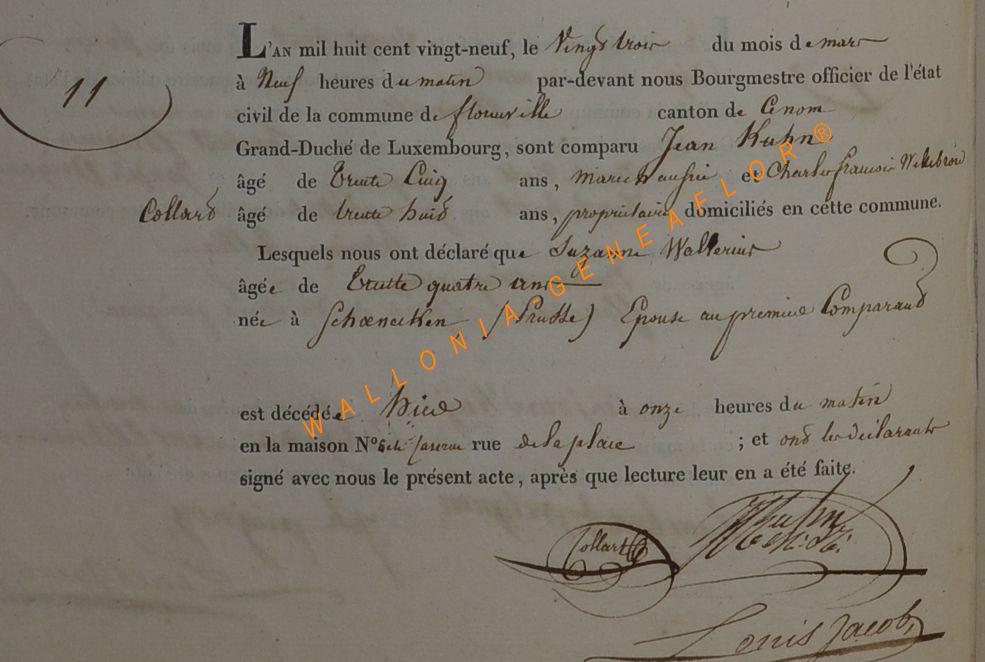 L'AN mil huit cent vingt-neuf, le Vingt trois du mois de mars
11
à Neuf heures du matin par-devant nous Bourgmestre officier de l'état
civil de la commune de florenville canton de
Grand-Duché de Luxembourg, sont comparu Jean Kuhn
âgé de Trente Cinq ans, et Charles françois
Collard âgé de trente huit ans, propriétaire domiciliés en cette commune.
Lesquels nous ont déclaré que Suzanne Wallerius
âgée de Trente quatre ans
née à Schoenecken (Prusse) Epouse au premier Comparant
est décédée hier à onze heures du matin
en la maison N° rue de la place ; et ont les déclarants
signé avec nous le présent acte, après que lecture leur en a été faite.
Collart Kuhn
Louis Jacob
WALLONIA GENEAFLOR ®